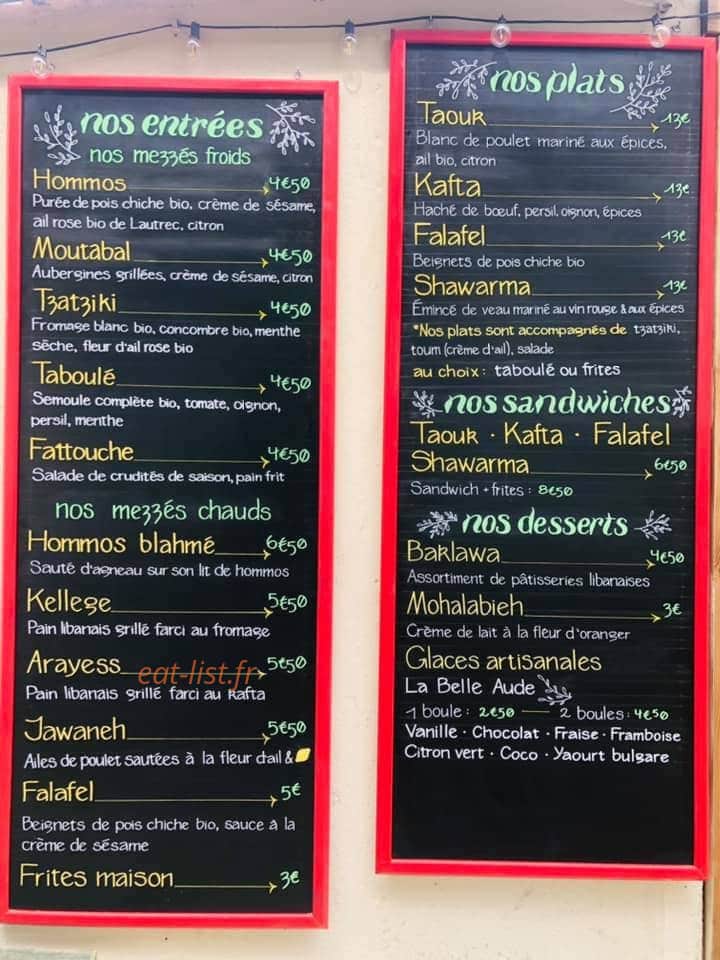 nos entrées
nos mezzés froids
Hommos 4€50
Purée de pois chiche bio, crème de sésame,
ail rose bio de Lautrec, citron
Moutabal 4€50
Aubergines grillées, crème de sésame, citron
Tzatziki 4€50
Fromage blanc bio, concombre bio, menthe
sèche, fleur d'ail rose bio
Taboulé 4€50
Semoule complète bio, tomate, oignon,
persil, menthe
Fattouche 4€50
Salade de crudités de saison, pain frit
nos mezzés chauds
Hommos blahmé 6€50
Sauté d'agneau sur son lit de hommos
Kellege 5€50
Pain libanais grillé farci au fromage
Arayess 5€50
eat-list.fr
Pain libanais grillé farci au kafta
Jawaneh 5€50
Ailes de poulet sautées à la fleur d'ail &
Falafel 5€
Beignets de pois chiche bio, sauce à la
crème de sésame
Frites maison 3€
nos plats
Taouk 13€
Blanc de poulet mariné aux épices,
ail bio, citron
Kafta 13€
Haché de bœuf, persil, oignon, épices
Falafel 13€
Beignets de pois chiche bio
Shawarma 13€
Émincé de veau mariné au vin rouge & aux épices
*Nos plats sont accompagnés de tzatziki,
toum (crème d'ail), salade
au choix : taboulé ou frites
nos sandwiches
Taouk · Kafta · Falafel
Shawarma 6€50
Sandwich + frites : 8€50
nos desserts
Baklawa 4€50
Assortiment de pâtisseries libanaises
Mohalabieh 3€
Crème de lait à la fleur d'oranger
Glaces artisanales
La Belle Aude
1 boule : 2€50 — 2 boules : 4€50
Vanille · Chocolat · Fraise · Framboise
Citron vert · Coco · Yaourt bulgare